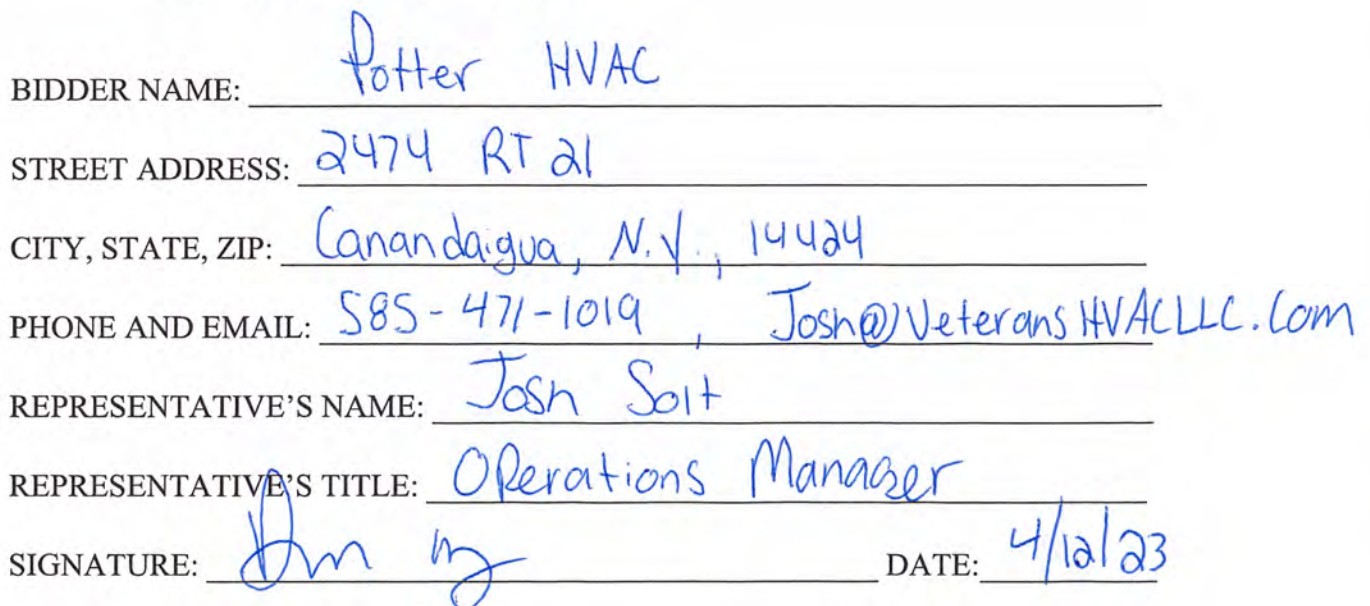 BIDDER NAME: Potter HVAC
STREET ADDRESS: 2474 RT 21
CITY, STATE, ZIP: Canandaigua, N.Y., 14424
PHONE AND EMAIL: 585-471-1019, Josh@VeteransHVACLLC.Com
REPRESENTATIVE'S NAME: Josh Solt
REPRESENTATIVE'S TITLE: Operations Manager
SIGNATURE: DATE: 4/12/23